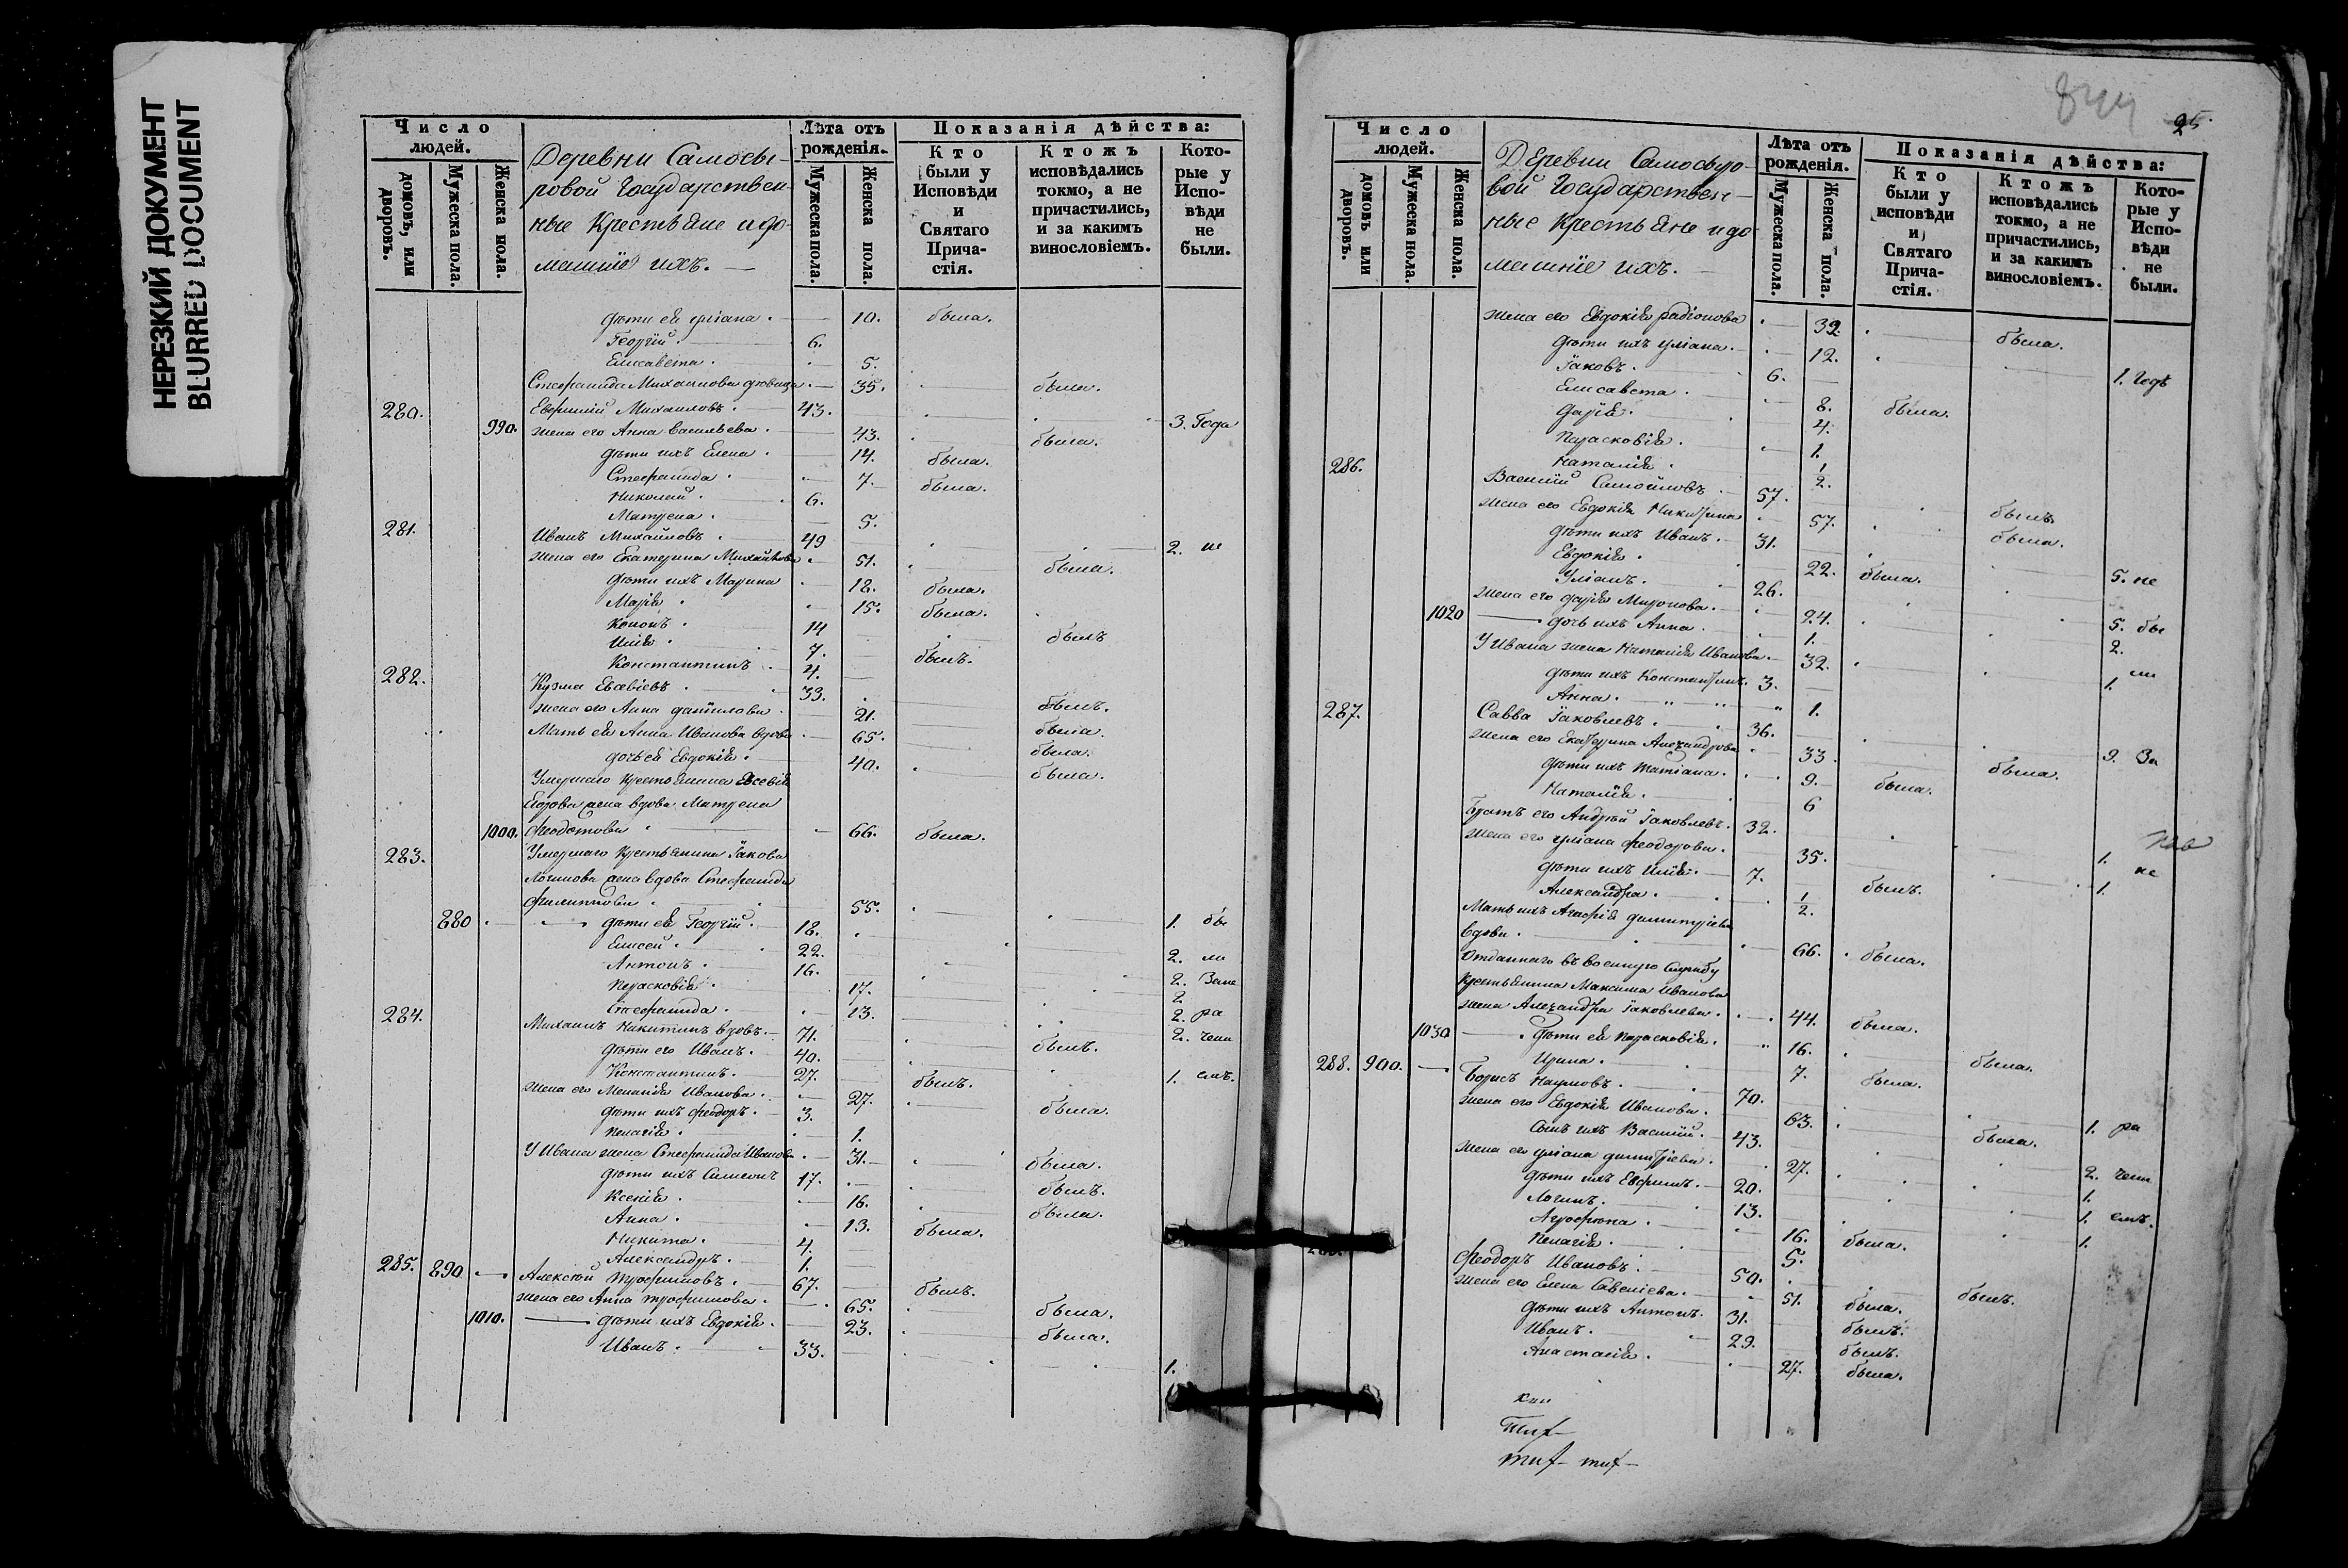 НЕРЕЗКИЙ ДОКУМЕНТ
BLURRED DOCUMENT
Число людей. Лѣта отъ рожденія. Показанія дѣйства:
домовъ, или дворовъ. Мужеска пола. Женска пола. Мужеска пола. Женска пола. Кто были у Исповѣди и Святаго Причастія. Ктожъ исповѣдались токмо, а не причастились, и за какимъ винословіемъ. Которые у Исповѣди не были.
Деревни Самосы-
ровой Государствен-
ные Крестьяне и до-
машніе ихъ.
дѣти ея Уліана. 10. была.
Георгій. 6.
Елисавета. 5.
Стефанида Михаилова девица. 35. была.
280. Евфимій Михаиловъ. 43. 3. Года
990. жена его Анна Васильева. 43. была.
дѣти ихъ Елена. 14. была.
Стефанида. 7. была.
Николай. 6.
Матрена. 5.
281. Иванъ Михайловъ. 49 2. не
жена его Екатерина Михайлова. 51. была.
дѣти ихъ Марина 18. была.
Марія. 15. была.
Кононъ. 14 былъ
Илія. 7. былъ.
Константинъ. 4.
282. Кузма Евсевіевъ. 33. былъ.
жена его Анна Данилова. 21. была.
Мать ея Анна Иванова вдова. 65. была.
дочь ея Евдокія. 40. была.
Умершаго крестьянина Евсевія
жена вдова Матрена
1000. Феодотова. 66. была.
283. Умершаго Крестьянина Іакова
Логинова жена вдова Стефанида
Филиппова. 55.
880 дѣти ея Георгій. 18. 1. бы
Елисей. 22. 2. ли
Антонъ. 16. 2.
Парасковія. 17. 2
Стефанида. 13. 2. ра
284. Михаилъ Никитинъ вдовъ. 71. былъ. 2. чени
дѣти его Иванъ. 40. 1. емъ.
Константинъ. 27. былъ.
жена его Меланія Иванова. 27. была.
дѣти ихъ Феодоръ. 3.
Пелагія. 1.
У Ивана жена Стефанида Иванова. 31. была.
дѣти ихъ Симеонъ 17. былъ.
Ксенія. 16. была.
Анна. 13. была.
Никита. 4.
Александръ. 1.
285. 890 Алексѣй Трофимовъ. 67. былъ.
жена его Анна Трофимова. 65. была.
1010. дѣти ихъ Евдокія. 23. была.
Иванъ. 33. 1.
25.
Число людей. Лѣта отъ рожденія. Показанія дѣйства:
домовъ или дворовъ. Мужеска пола. Женска пола. Мужеска пола. Женска пола. Кто были у исповѣди и Святаго Причастія. Ктожъ исповѣдались токмо, а не причастились, и за какимъ винословіемъ. Которые у Исповѣди не были.
Деревни Самосыро-
вой Государствен-
ные Крестьяне и до
машніе ихъ.
жена его Евдокія Радіонова 39. была.
дѣти ихъ Уліана. 12. 1. Годъ
Іаковъ. 6.
Елисавета. 8. была.
Дарія. 4.
Парасковія. 1.
Наталія. 1/2.
286. Василій Самойловъ. 57. былъ
жена его Евдокія Никитина 57. была.
дѣти ихъ Иванъ. 31. 5. не
Евдокія. 22. была.
Уліанъ. 26. 5. бы
жена его Дарія Миронова. 24. 2.
1020 дочь ихъ Анна. 1.
У Ивана жена Наталія Иванова. 32. 1. ли
дѣти ихъ Константинъ. 3.
Анна. 1.
287. Савва Іаковлевъ. 36. 9. За
жена его Екатерина Александрова 33. была.
дѣти ихъ Татіана. 9. была.
Наталія. 6
Братъ его Андрѣй Іаковлевъ. 32. 1.
жена его Уліана Феодорова. 35. 1. не
дѣти ихъ Илія. 7. былъ.
Александра. 1/2.
Мать ихъ Агафія Димитріева
вдова. 66. была.
Отданнаго въ военную службу
крестьянина Максима Иванова
жена Александра Іаковлева. 44. была.
1030 дѣти ея Парасковія. 16. была.
Ирина. 7. была.
288. 900. Борисъ Наумовъ. 70. 1. ра
жена его Евдокія Иванова. 63. была.
Сынъ ихъ Василій. 43. 2. чени
жена его Уліана Димитріева. 27. 1.
дѣти ихъ Евфимъ. 20. 1. емъ.
Логинъ. 13. 1.
Агрофена. 16. была.
Пелагія. 5.
Феодоръ Ивановъ. 50. былъ.
жена его Елена Савеліева. 51. была.
дѣти ихъ Антонъ. 31. былъ.
Иванъ. 29. былъ.
Анастасія. 27. была.